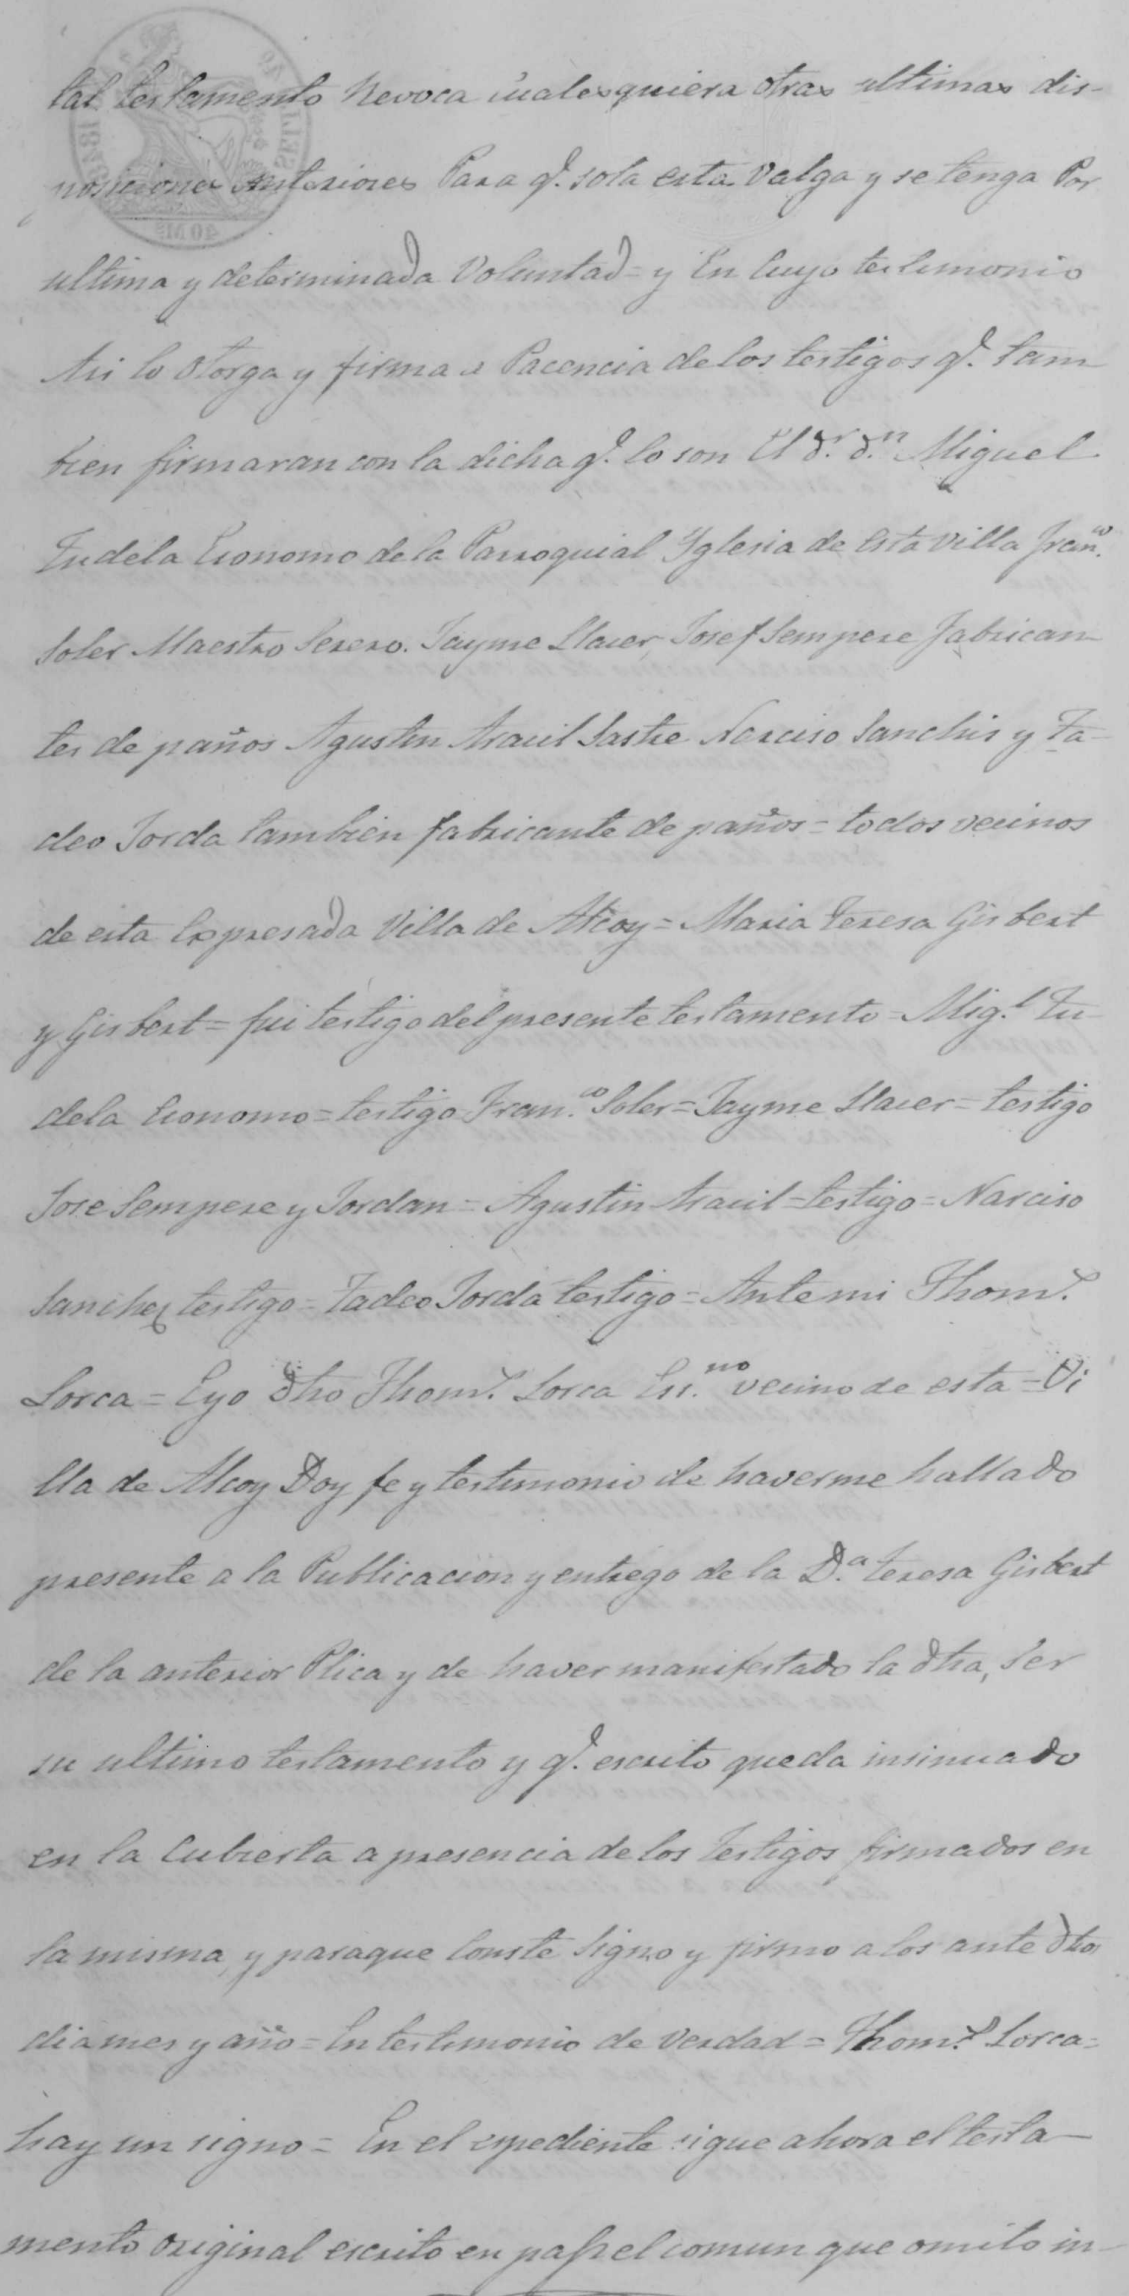 tal testamento Revoca cualesquiera otras ultimas dis-
posiciones Anteriores Para q.e sola esta Valga y se tenga Por
ultima y determinada Voluntad = y En cuyo testimonio
Asi lo Otorga y firma a Pacencia de los testigos q.e tam
bien firmaran con la dicha q.e lo son El d.r d.n Miguel
Tudela Economo de la Parroquial Yglesia de Esta Villa Fran.co
Soler Maestro Serero. Jayme Llacer, Josef Sempere fabrican-
tes de paños Agustin Aracil Sastre Narciso Sanchis y Ta-
deo Jorda tambien fabricante de paños = todos vecinos
de esta Expresada Villa de Alcoy = Maria Teresa Gisbert
y Gisbert = fui testigo del presente testamento = Mig.l Tu-
dela Economo = testigo Fran.co Soler = Jayme Llacer = testigo
Jose Sempere y Jordan = Agustin Aracil = testigo = Narciso
Sanchez testigo = Tadeo Jordá testigo = Ante mi Thom.s
Lorca = E yo dho Thom.s Lorca Ess.no vecino de esta = Vi
lla de Alcoy Doy fe y testimonio de haverme hallado
presente a la Publicacion y entrego de la D.a Teresa Gisbert
de la anterior Plica y de haver manifestado la dha, ser
su ultimo testamento y q.e escrito queda insinuado
en la Cubierta a presencia de los Testigos firmados en
la misma, y paraque Conste Signo y firmo a los ante dhos
dia mes y año = En testimonio de verdad = Thom.s Lorca =
hay un signo = En el espediente sigue ahora el testa-
mento original escrito en papel comun que omito in-
40 Ms